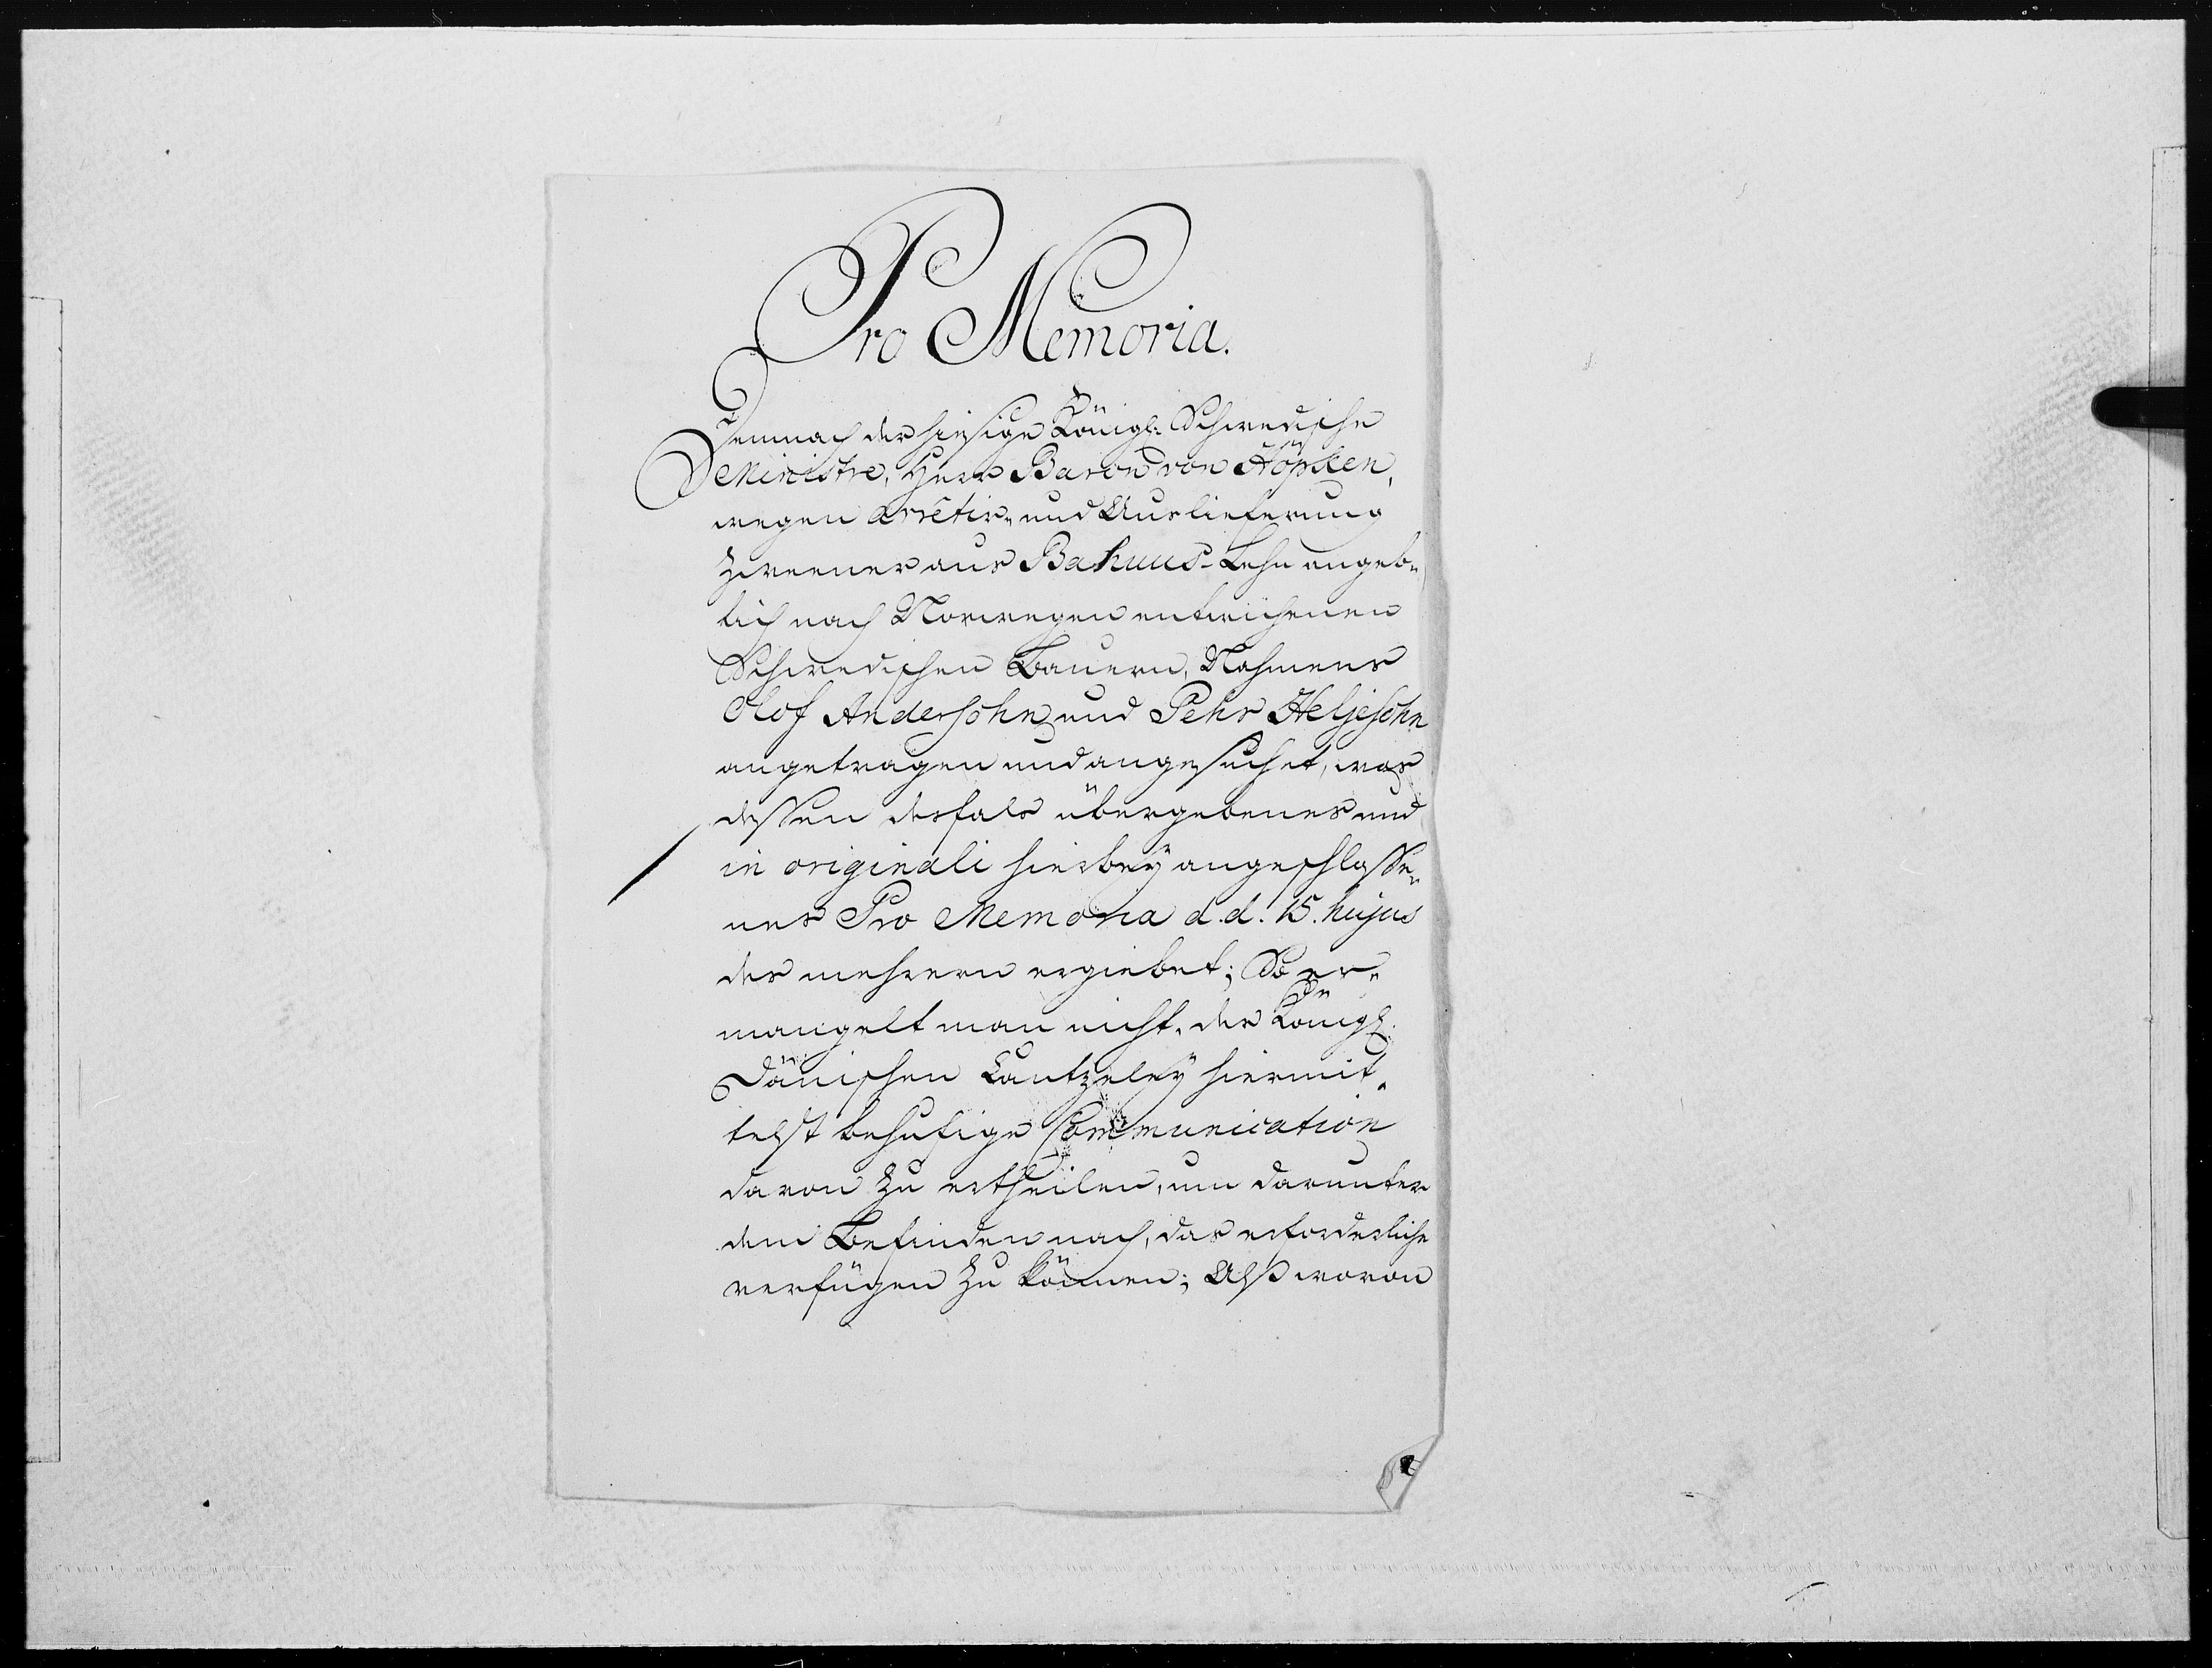 Pro Memoria.
Demnach der hiesige Königl: Schwedische
Ministre, Herr Baron von Höpken,
wegen Arrêtir- und Auslieferung
zweener aus Bahuus-Lehn angeb-
lich nach Norwegen entwichenen
Schwedischen Bauern, Nahmens
Olof Andersohn und Pehr Heljesohn
angetragen und angesuchet, was
dessen desfals übergebenes und
in originali hierbey angeschlosse-
nes Pro Memoria d.d. 15. hujus
des mehrern ergiebet; So er-
mangelt man nicht, der Königl.
Dänischen Cantzeley hiermit-
telst behufige Communication
davon zu ertheilen, um darunter
dem Befinden nach, das erforderliche
verfügen zu können; Alß wovon